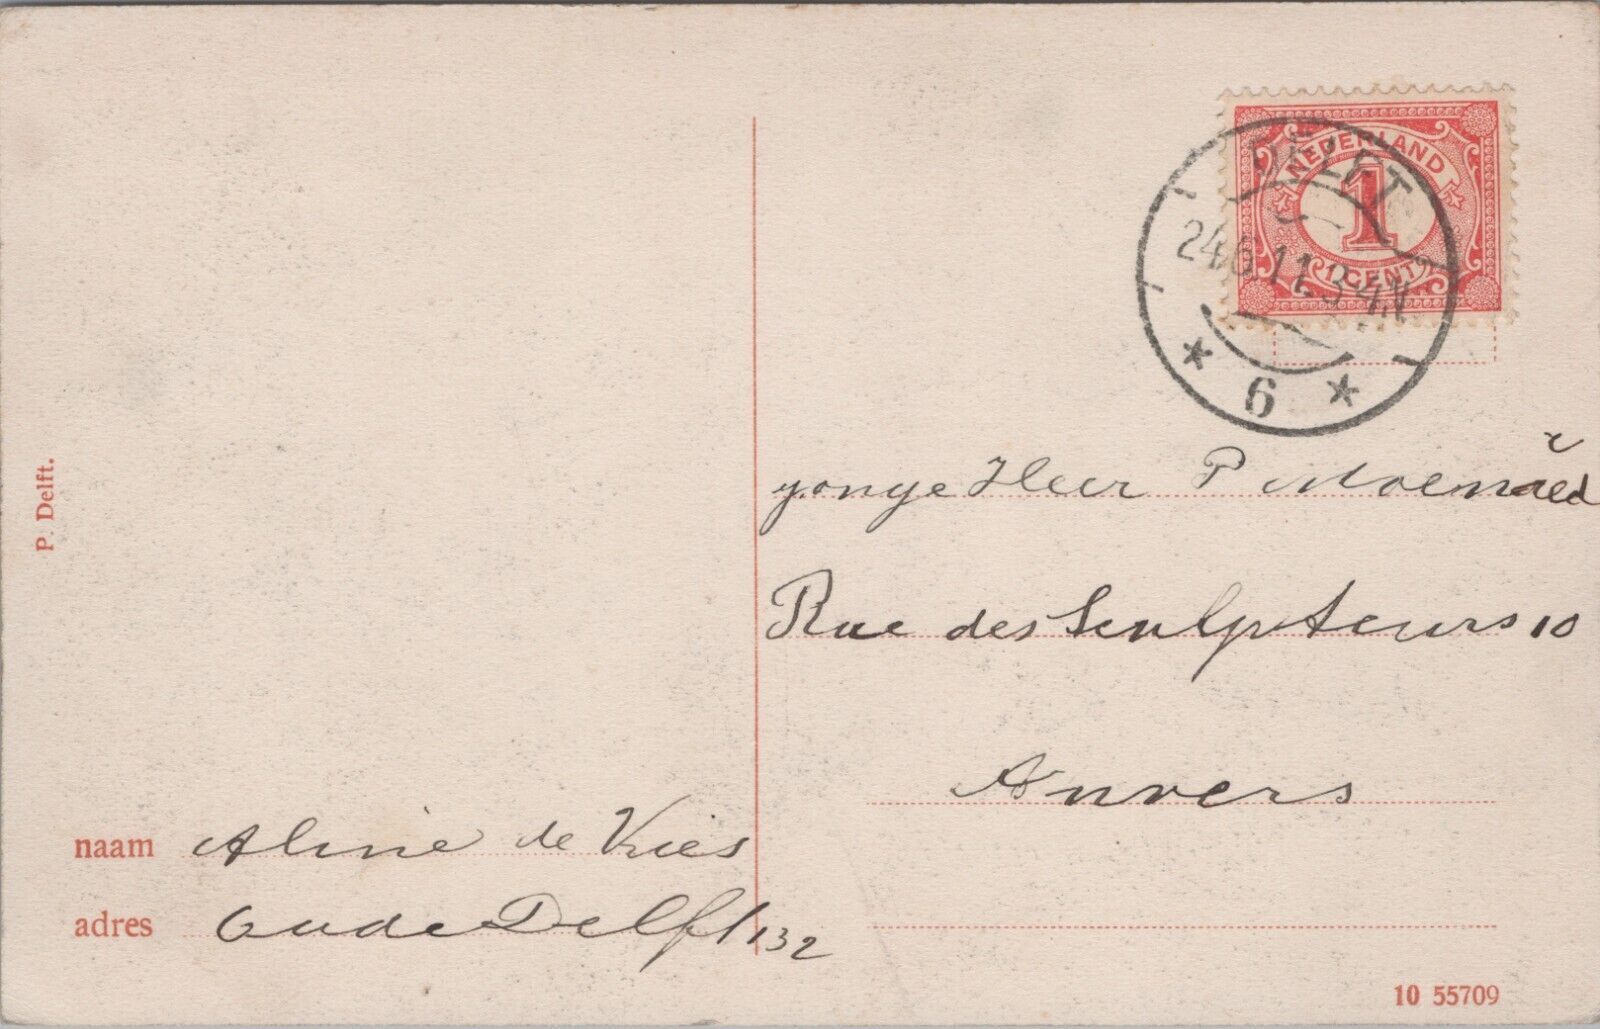 NEDERLAND
1
1 CENT
DELFT
6
P. Delft.
yonge Heer P
Rue des Sculpteurs 10
Anvers
naam Aline de Vries
adres Oude Delft 132
10 55709